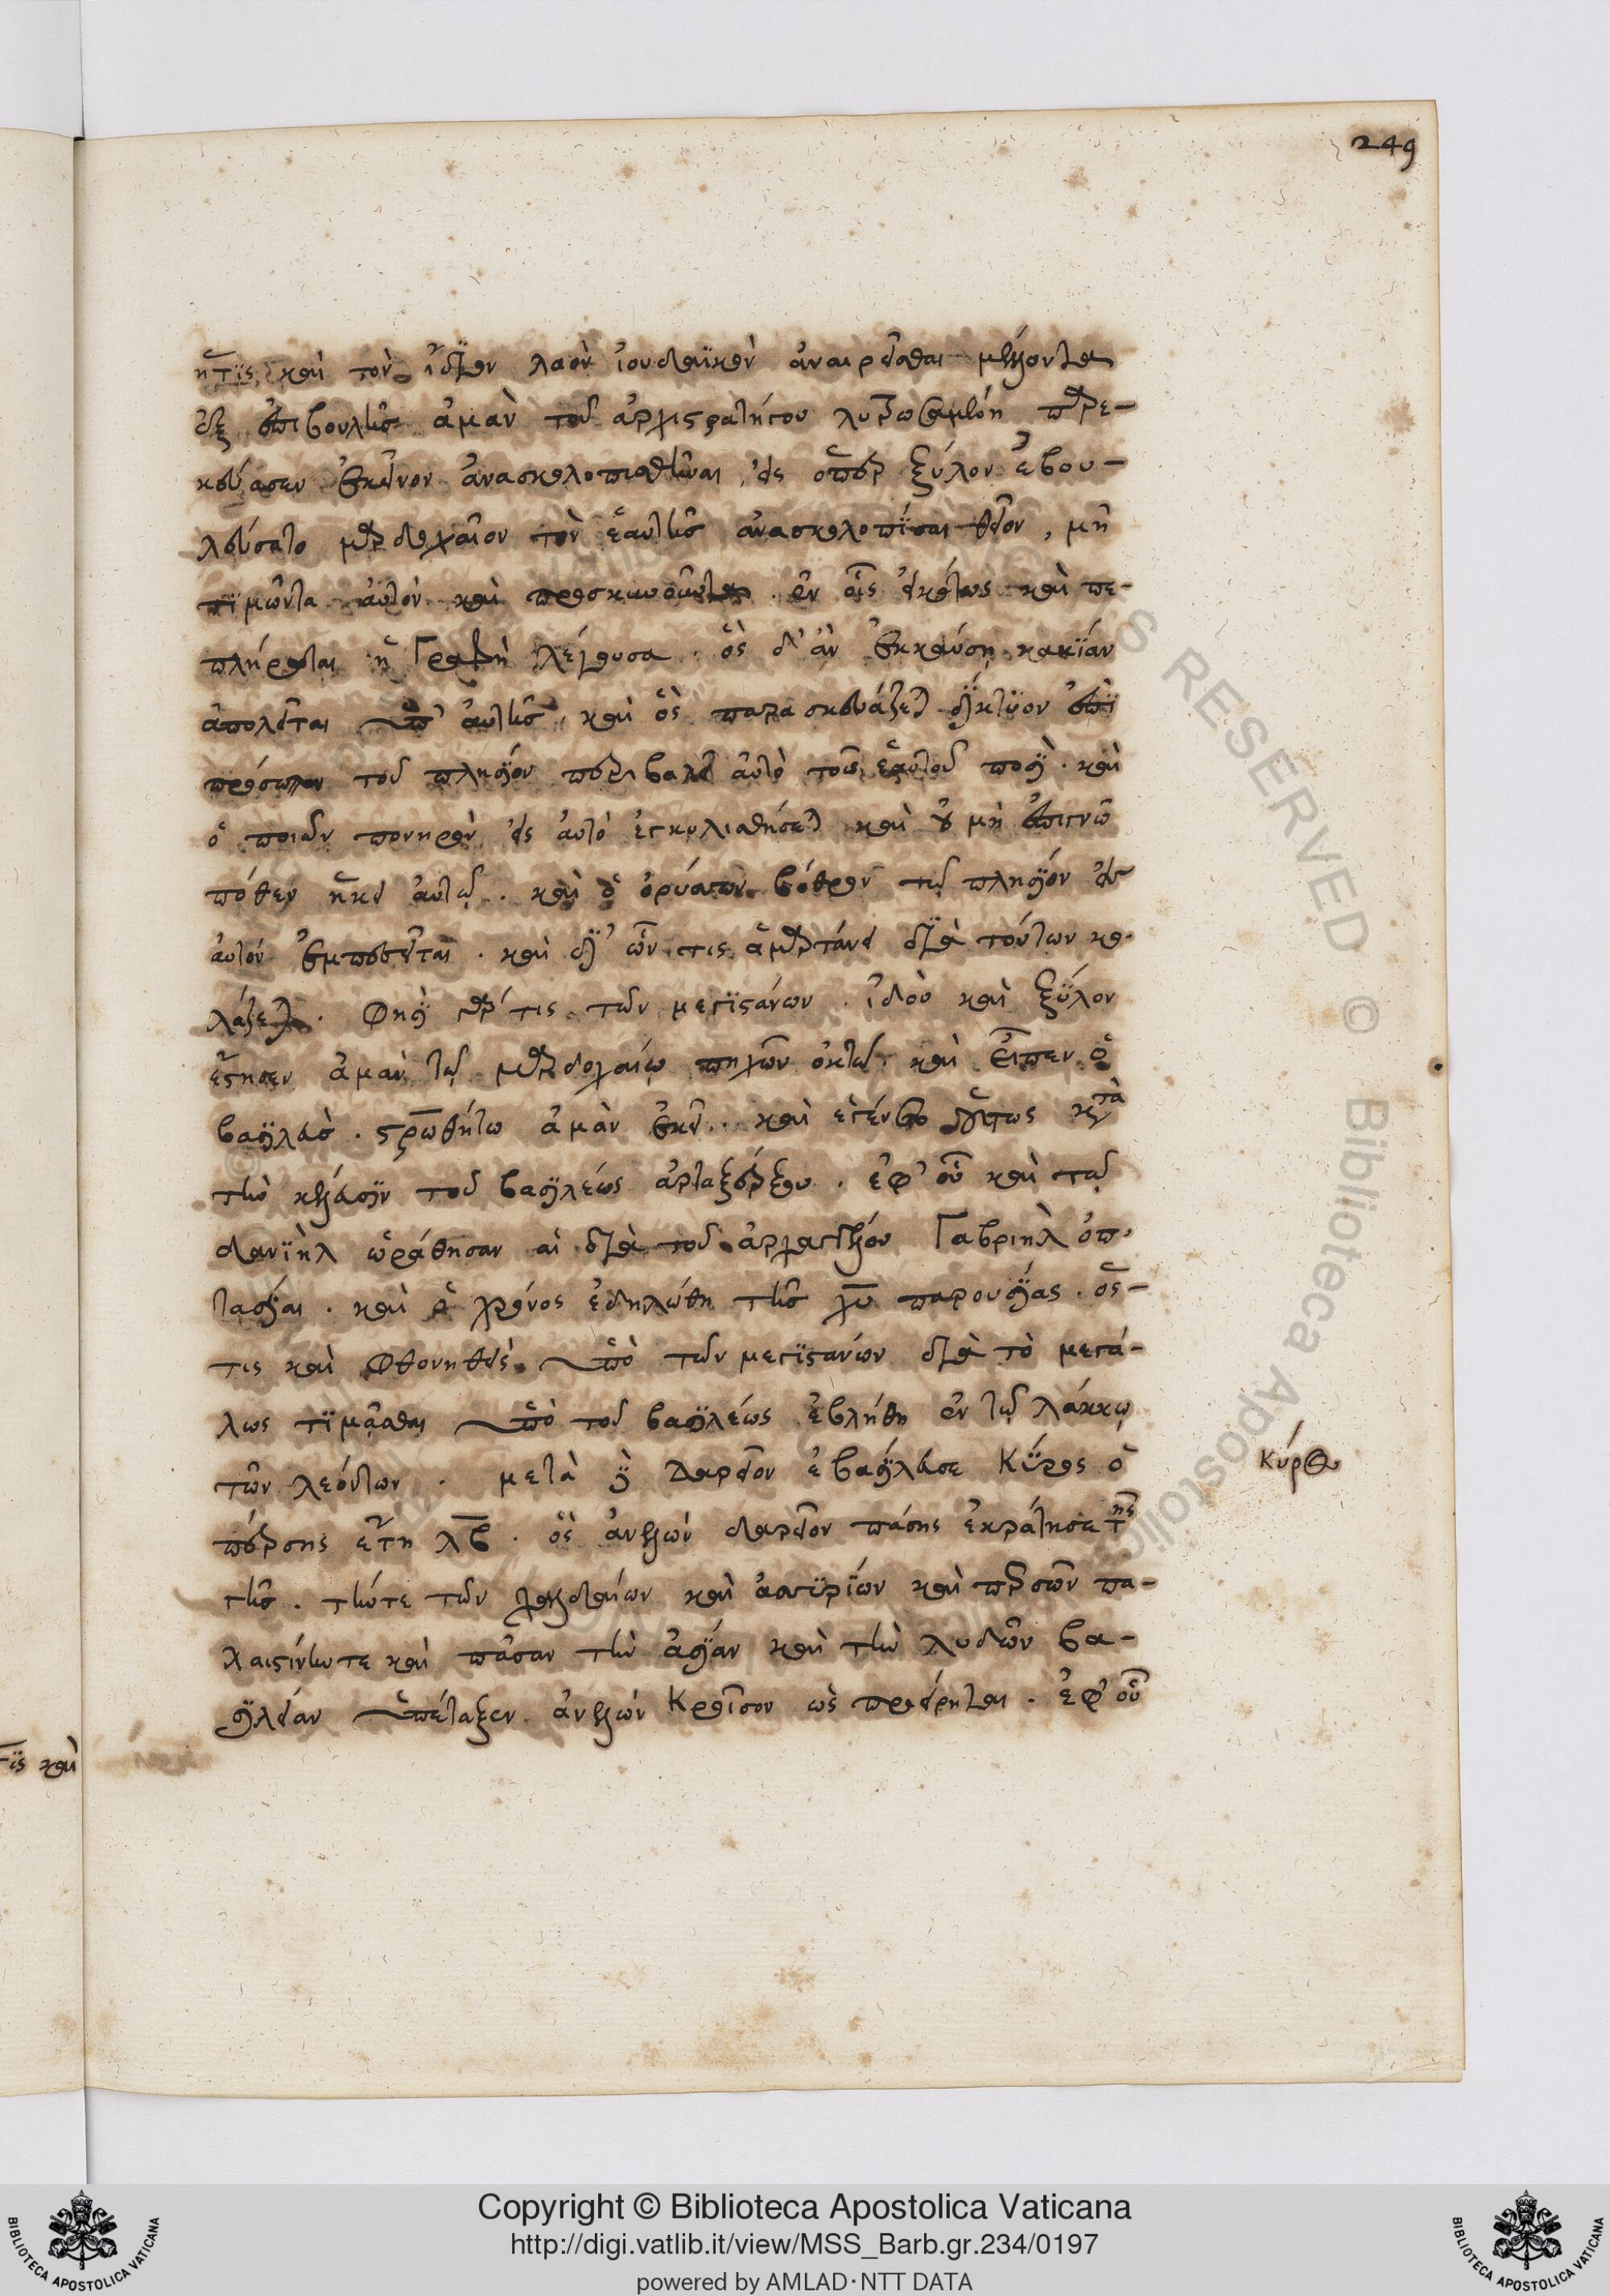 249
ἥτις καὶ τὸν ἴδιον λαὸν ἰουδαϊκὸν ἀναιρεῖσθαι μέλλοντα
ἐξ ἐπιβουλῆς ἀμὰν τοῦ ἀρχιστρατήγου λυτρωσαμένη παρε-
κεύασεν ἐκεῖνον ἀνασκολοπισθῆναι, εἰς ὅπερ ξύλον ἐβου-
λεύσατο μαρδοχαῖον τὸν ἑαυτῆς ἀνασκολοπίσαι θεῖον, μὴ
τιμῶντα αὐτὸν καὶ προσκυνοῦντα. ἐν οἷς εἰκότως καὶ πε-
πλήρωται ἡ Γραφὴ λέγουσα. ὃς δ' ἂν ἐκκαύσῃ κακίαν
ἀπολεῖται ὑπ' αὐτῆς. καὶ ὃς παρασκευάζεται δίκτυον ἐπὶ
πρόσωπον τοῦ πλησίον περιβαλεῖ αὐτὸ τοῖς ἑαυτοῦ ποσί. καὶ
ὁ ποιῶν πονηρὸν εἰς αὐτὸ ἐγκυλισθήσεται καὶ οὐ μὴ ἐπιγνῶ
πόθεν ἥκει αὐτῷ. καὶ ὁ ὀρύσσων βόθρον τῷ πλησίον εἰς
αὐτὸν ἐμπεσεῖται. καὶ δι' ὧν τις ἁμαρτάνει διὰ τούτων κο-
λάζεται. Φησὶ γάρ τις τῶν μεγιστάνων. ἰδοὺ καὶ ξύλον
ἔστησεν ἀμὰν τῷ μαρδοχαίῳ πηχῶν ὀκτώ. καὶ εἶπεν ὁ
βασιλεύς. σταυρωθήτω ἀμὰν ἐκεῖ. καὶ ἐγένετο οὕτως κατὰ
τὴν κέλευσιν τοῦ βασιλέως ἀρταξέρξου. ἐφ' οὗ καὶ τῷ
δανιὴλ ὡράθησαν αἱ διὰ τοῦ ἀρχαγγέλου Γαβριὴλ ὀπ-
τασίαι. καὶ ὁ χρόνος ἐδηλώθη τῆς χυ παρουσίας. ὅς-
τις καὶ φθονηθεὶς ὑπὸ τῶν μεγιστάνων διὰ τὸ μεγά-
λως τιμᾶσθαι ὑπὸ τοῦ βασιλέως ἐβλήθη ἐν τῷ λάκκῳ
τῶν λεόντων. μετὰ δὲ Δαρεῖον ἐβασίλευσε Κύρος ὁ
Κύρου
πέρσης ἔτη λβ. ὃς ἀνελὼν δαρεῖον πάσης ἐκράτησε τῆς
γῆς. τήν τε τῶν χαλδαίων καὶ ἀσσυρίων καὶ περσῶν πα-
λαιστίνην τε καὶ πᾶσαν τὴν ἀσίαν καὶ τὴν λυδῶν βα-
σιλείαν ὑπέταξεν ἀνελὼν Κροῖσον ὡς προείρηται. ἐφ' οὗ
τις καὶ
Copyright © Biblioteca Apostolica Vaticana
http://digi.vatlib.it/view/MSS_Barb.gr.234/0197
powered by AMLAD·NTT DATA
BIBLIOTECA APOSTOLICA VATICANA
BIBLIOTECA APOSTOLICA VATICANA